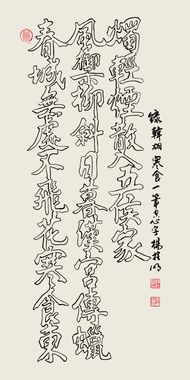 春城無處不飛花寒食東
風御柳斜日暮漢宮傳蠟
燭輕煙散入五侯家
錄韓翃寒食一筆空心字楊